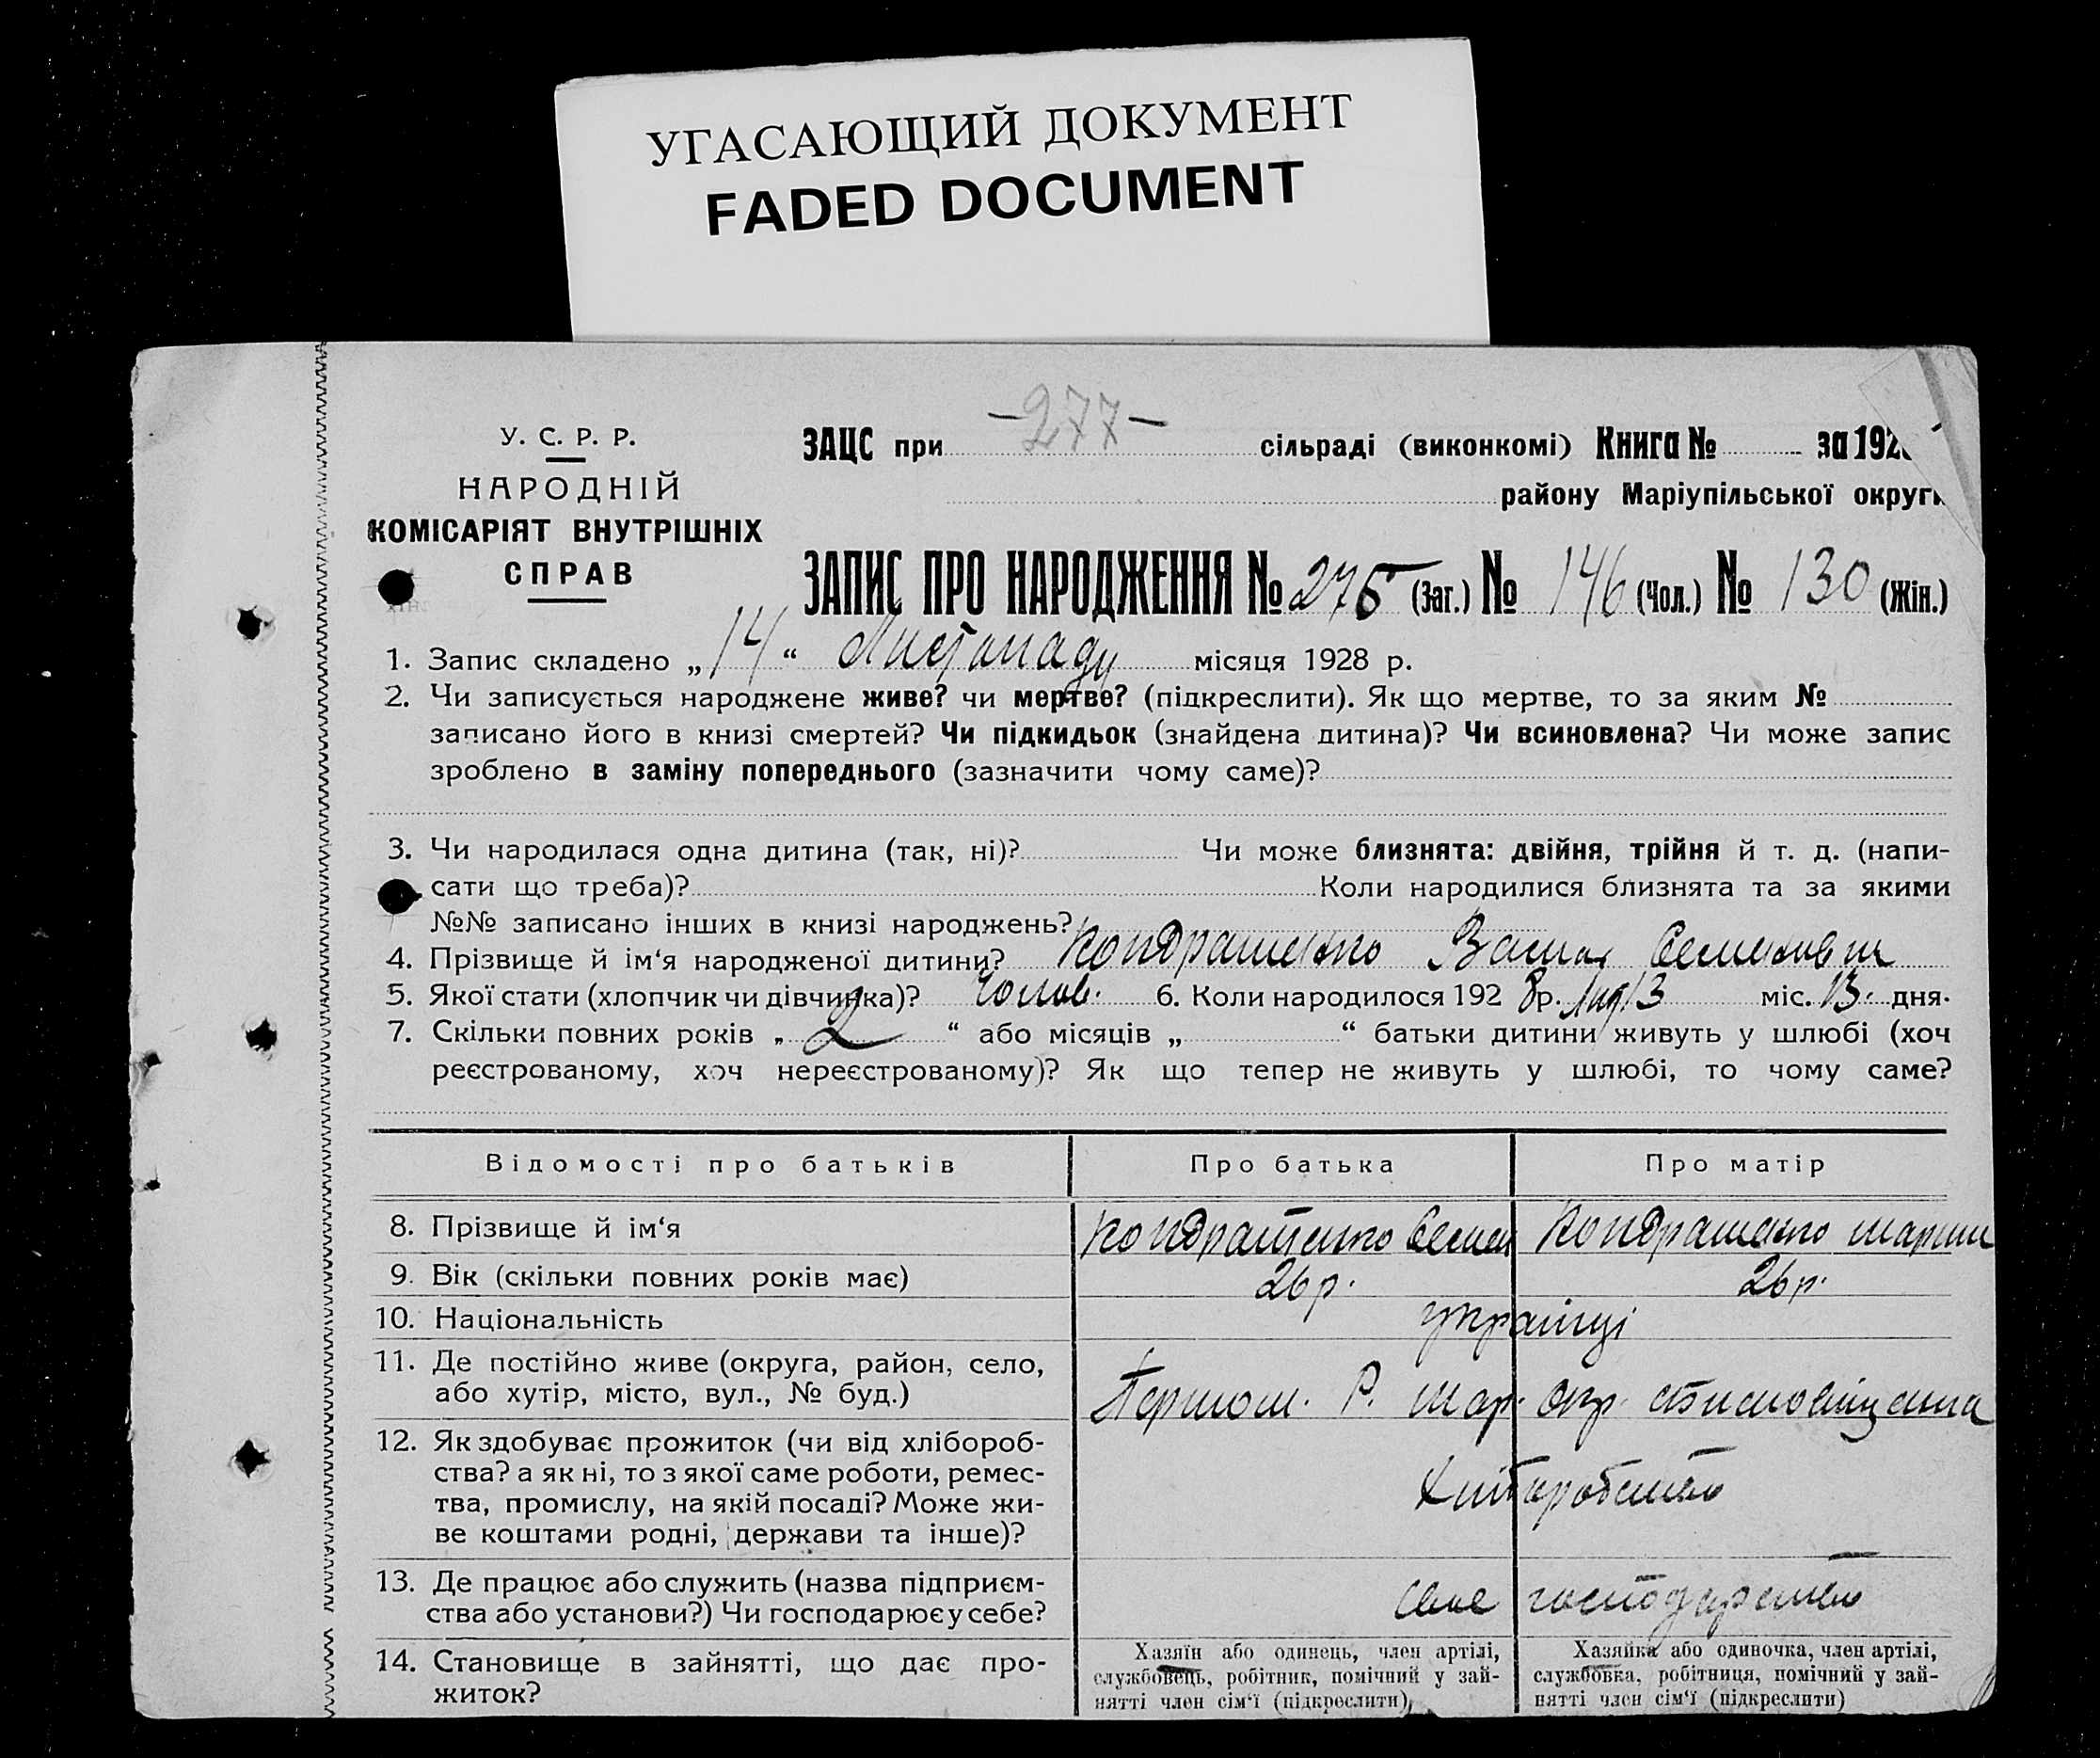 УГАСАЮЩИЙ ДОКУМЕНТ
FADED DOCUMENT
У. С. Р. Р.
НАРОДНІЙ
КОМІСАРІЯТ ВНУТРІШНІХ
СПРАВ
ЗАЦС при -277- сільраді (виконкомі) Книга № за 192
району Маріупільської округи
ЗАПИС ПРО НАРОДЖЕННЯ № 276 (Заг.) № 146 (Чол.) № 130 (Жін.)
1. Запис складено „14“ Листопаду місяця 1928 р.
2. Чи записується народжене живе? чи мертве? (підкреслити). Як що мертве, то за яким №
записано його в книзі смертей? Чи підкидьок (знайдена дитина)? Чи всиновлена? Чи може запис
зроблено в заміну попереднього (зазначити чому саме)?
3. Чи народилася одна дитина (так, ні)? Чи може близнята: двійня, трійня й т. д. (напи-
сати що треба)? Коли народилися близнята та за якими
№№ записано інших в книзі народжень?
4. Прізвище й ім‘я народженої дитини? Кондратенко
5. Якої стати (хлопчик чи дівчинка)? Чолов. 6. Коли народилося 192 8 р. міс. 13. дня.
7. Скільки повних років „ 2 “ або місяців „ “ батьки дитини живуть у шлюбі (хоч
реєстрованому, хоч нереєстрованому)? Як що тепер не живуть у шлюбі, то чому саме?
Відомості про батьків Про батька Про матір
8. Прізвище й ім‘я Кондратенко Семен Кондратенко
9. Вік (скільки повних років має) 26 р. 26 р.
10. Національність українці
11. Де постійно живе (округа, район, село,
або хутір, місто, вул., № буд.) Р. Мар. окр.
12. Як здобуває прожиток (чи від хлібороб-
ства? а як ні, то з якої саме роботи, ремес-
тва, промислу, на якій посаді? Може жи-
ве коштами родні, держави та інше)? Хліборобство
13. Де працює або служить (назва підприєм-
ства або установи?) Чи господарює у себе? своє господарство
14. Становище в зайнятті, що дає про-
житок?
Хазяїн або одинець, член артілі,
службовець, робітник, помічний у зай-
нятті член сім‘ї (підкреслити)
Хазяйка або одиночка, член артілі,
службовка, робітниця, помічний у зай-
нятті член сім‘ї (підкреслити)